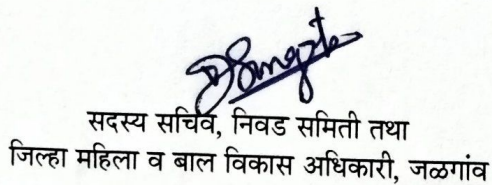 सदस्य सचिव, निवड समिती तथा
जिल्हा महिला व बाल विकास अधिकारी, जळगांव